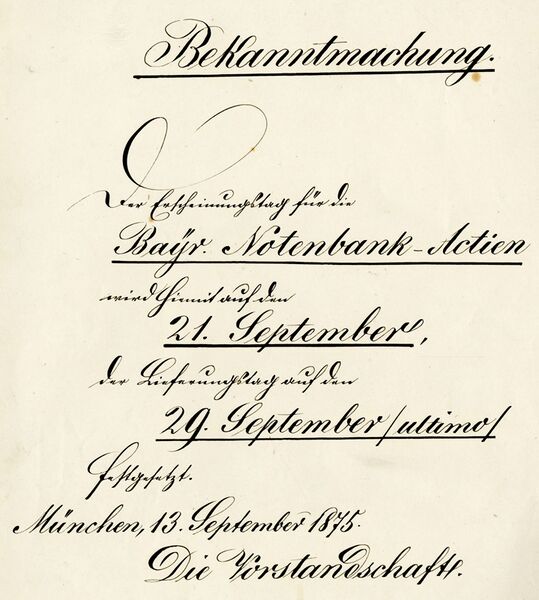 Bekanntmachung.
Der Erscheinungstag für die
Bayr. Notenbank-Actien
wird hiemit auf den
21. September,
der Lieferungstag auf den
29. September /ultimo/
festgesetzt.
München, 13. September 1875.
Die Vorstandschaft.